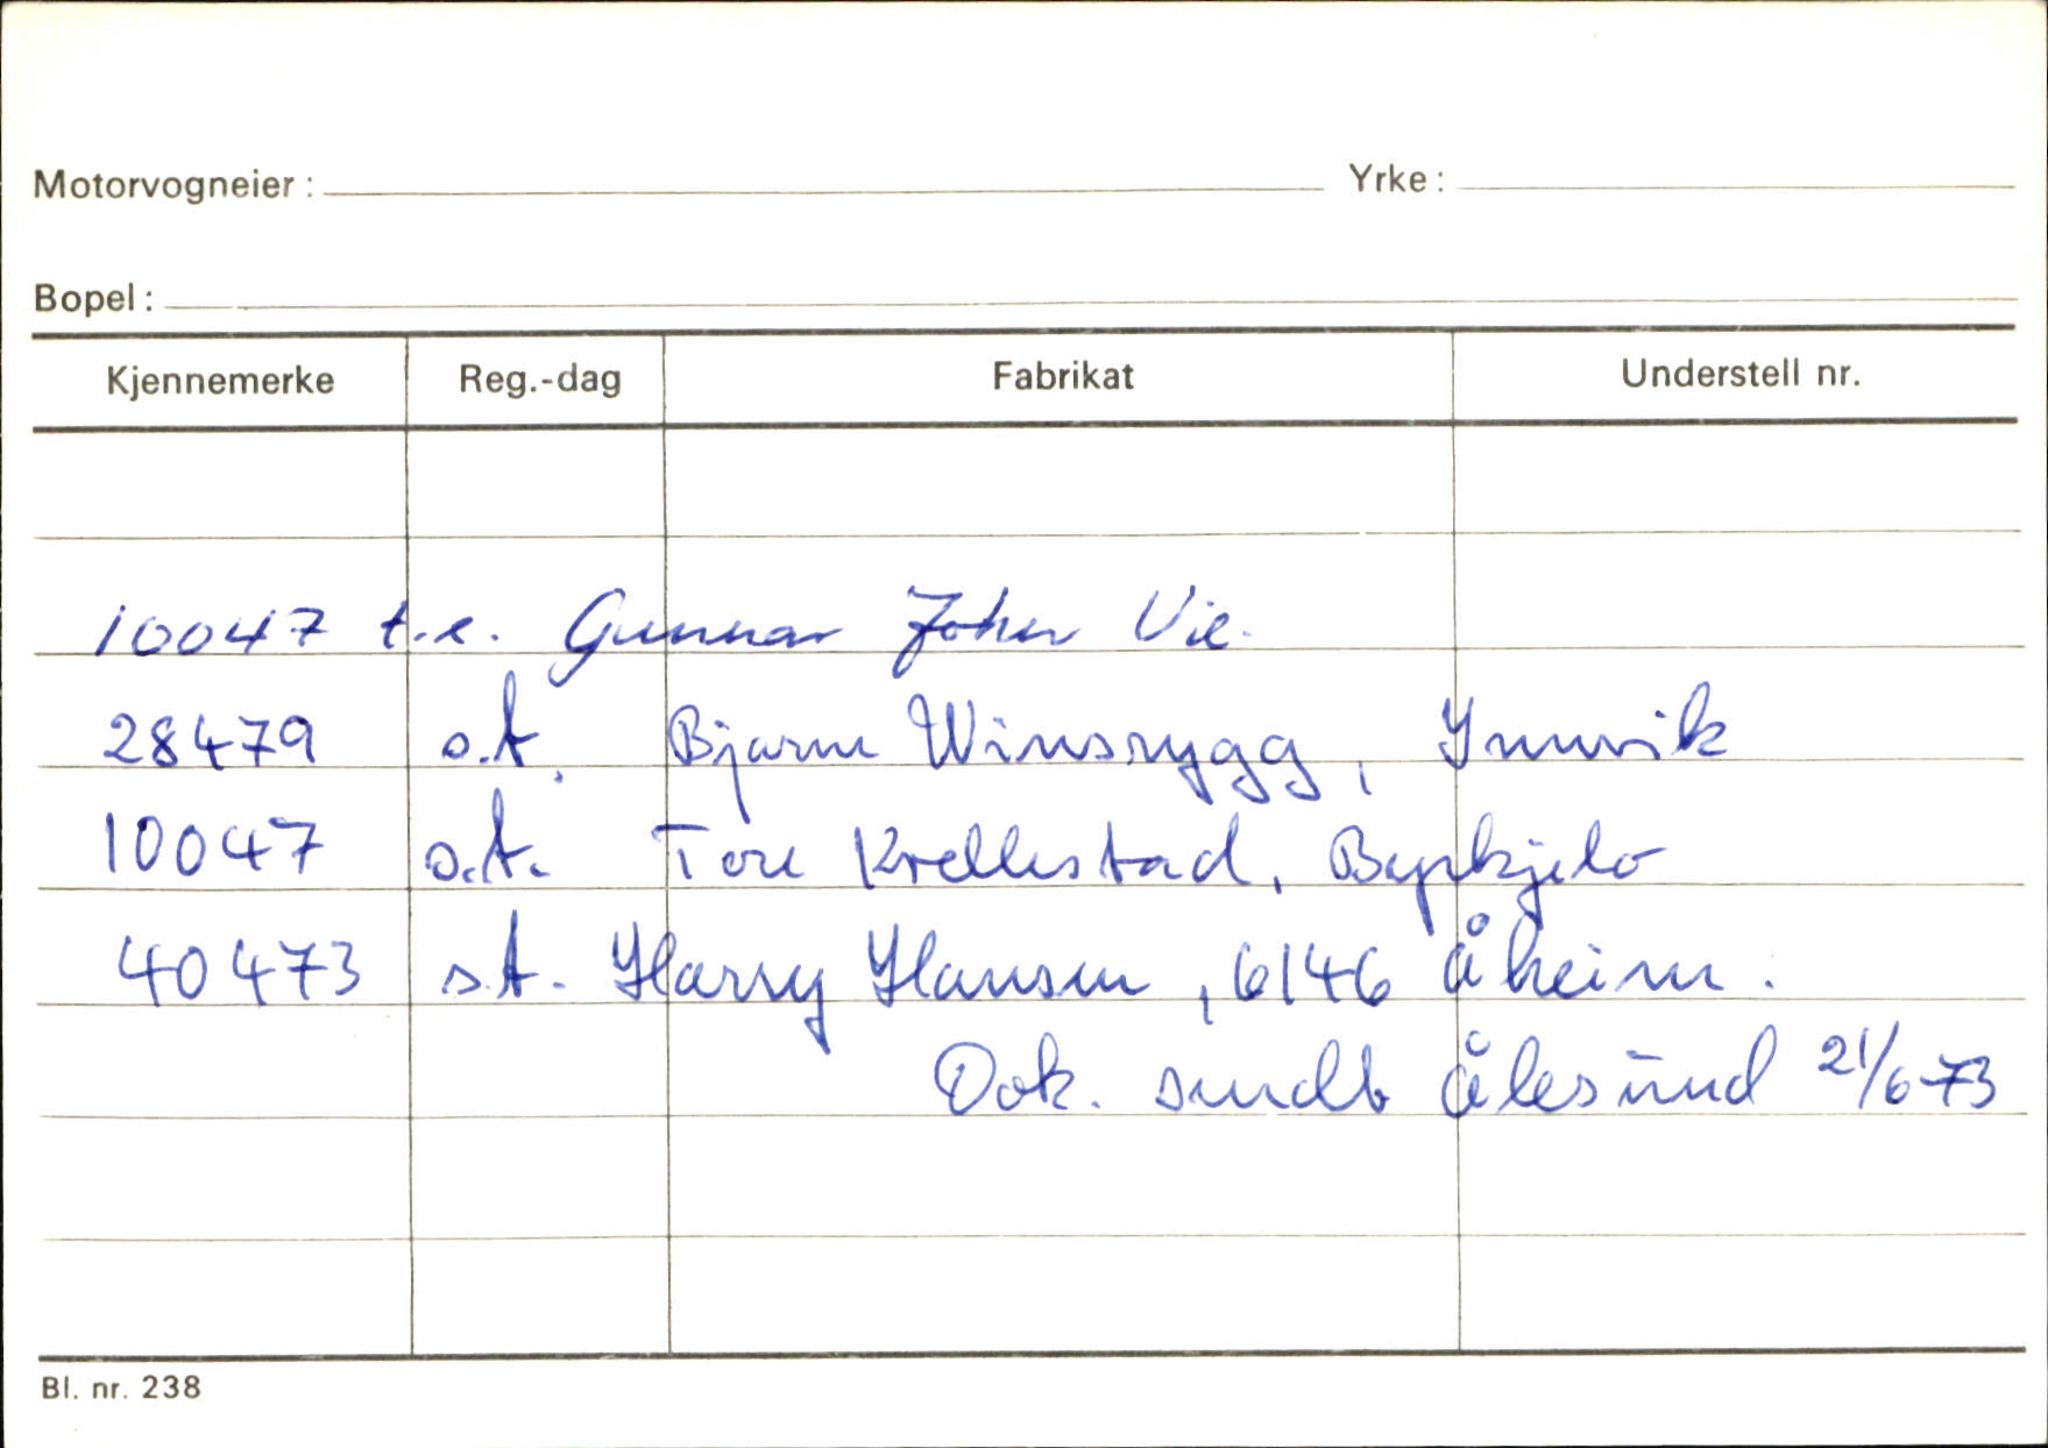 Motorvogneier: Yrke:
Bopel:
Kjennemerke Reg.-dag Fabrikat Understell nr.
10047 t.e. Gunnar Johan Vie.
28479 o.t. Bjarne Winsrygg, Innvik
10047 o.t. Tore Krellestad, Byrkjelo
40473 s.t. Harry Hansen, 6146 Åheim.
Dok. sendt Ålesund 21/6-73
Bl. nr. 238